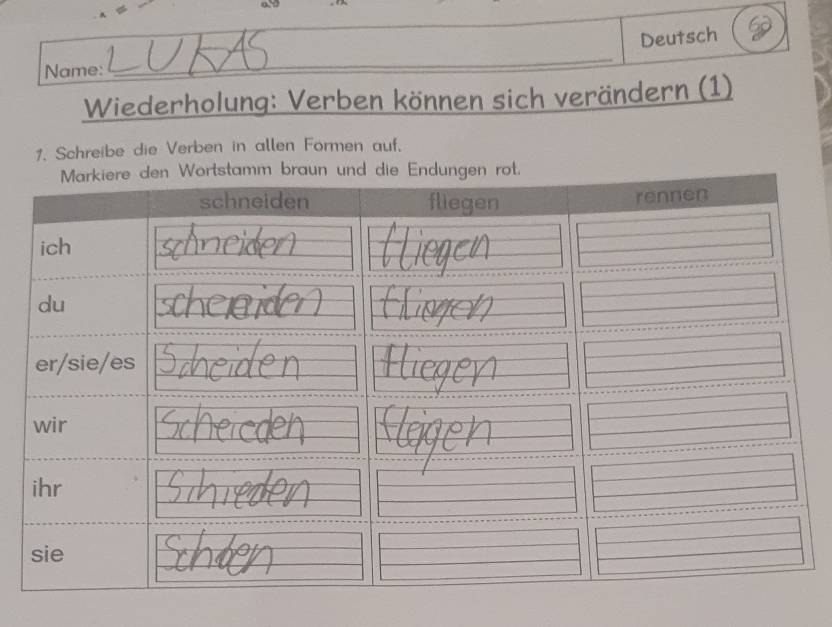 Deutsch
Name: LUKAS
Wiederholung: Verben können sich verändern (1)
1. Schreibe die Verben in allen Formen auf.
Markiere den Wortstamm braun und die Endungen rot.
schneiden fliegen rennen
ich schneiden fliegen
du schereiden fliegen
er/sie/es Scheiden fliegen
wir Scheieden fleigen
ihr Schieden
sie Schden